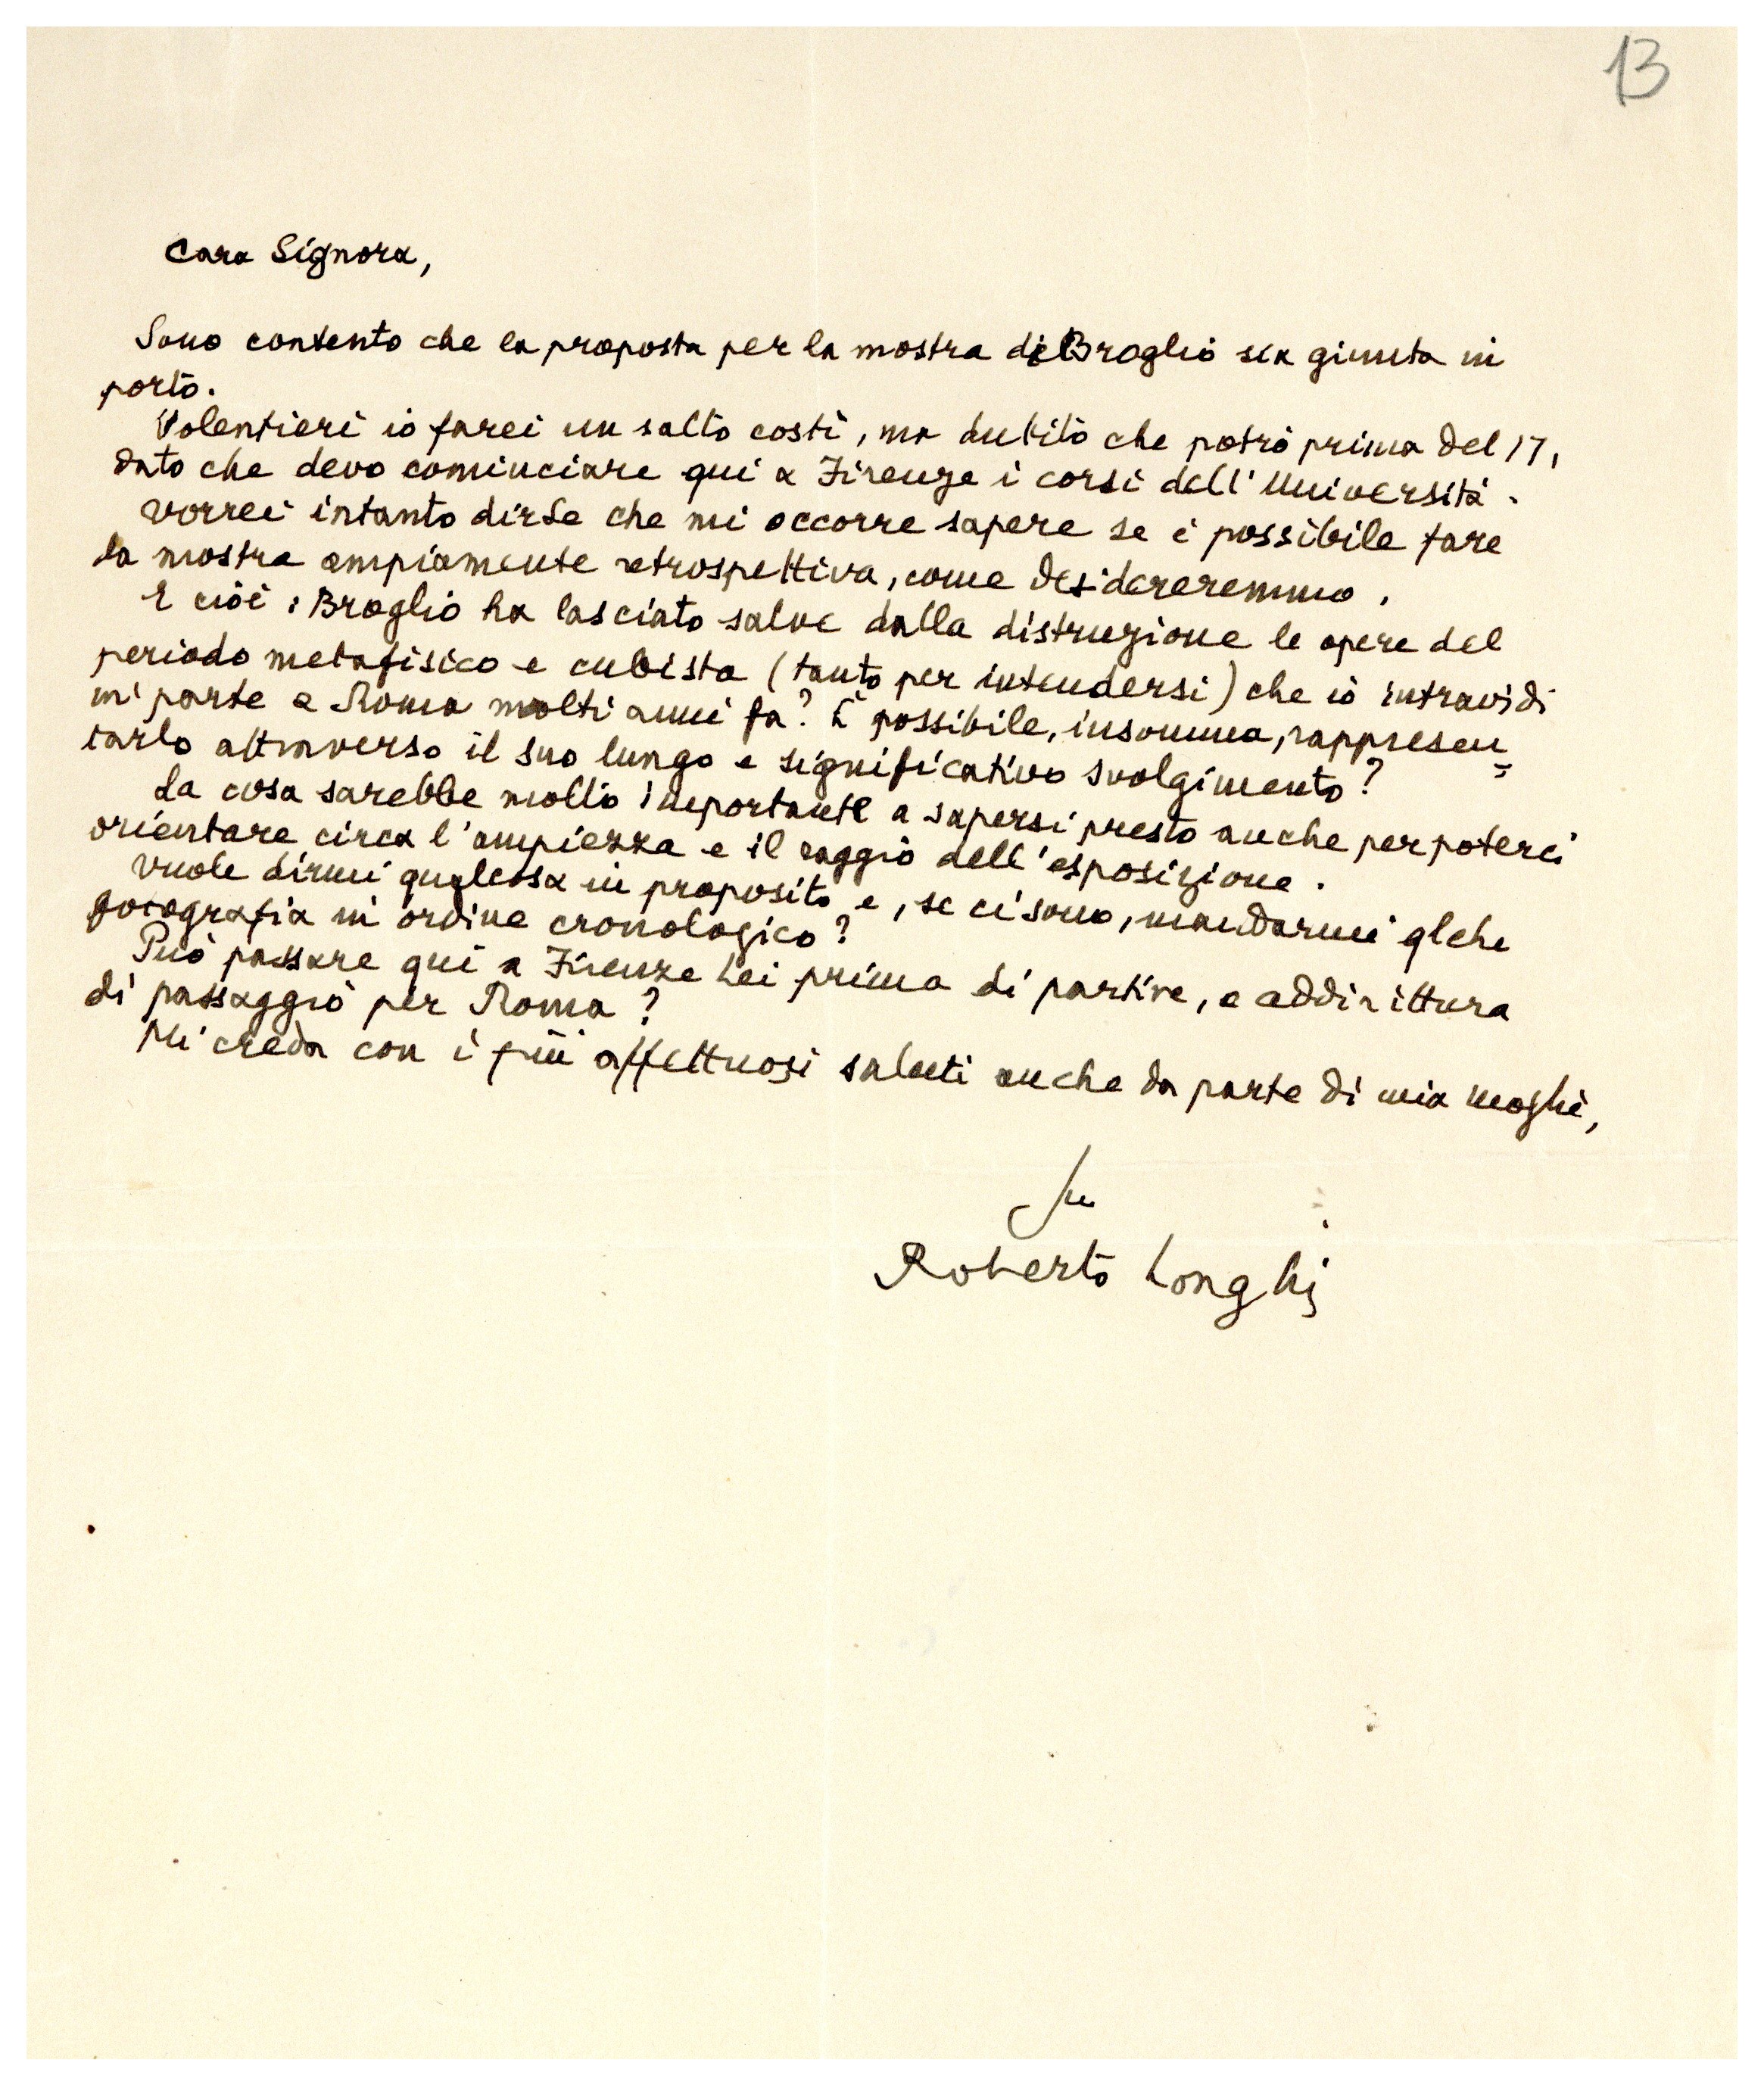 13
Cara Signora,
Sono contento che la proposta per la mostra di Broglio sia giunta in
porto.
Volentieri io farei un salto costì, ma dubito che potrò prima del 17,
dato che devo cominciare qui a Firenze i corsi dell'Università.
Vorrei intanto dirLe che mi occorre sapere se è possibile fare
la mostra ampiamente retrospettiva, come desidereremmo.
E cioè: Broglio ha lasciato salve dalla distruzione le opere del
periodo metafisico e cubista (tanto per intendersi) che io intravidi
in parte a Roma molti anni fa? È possibile, insomma, rappresen=
tarlo attraverso il suo lungo e significativo svolgimento?
La cosa sarebbe molto importante a sapersi presto anche per poterci
orientare circa l'ampiezza e il raggio dell'esposizione.
Vuole dirmi qualcosa in proposito e, se ci sono, mandarmi qlche
fotografia in ordine cronologico?
Può passare qui a Firenze Lei prima di partire, o addirittura
di passaggio per Roma?
Mi creda con i più affettuosi saluti anche da parte di mia moglie,
Suo
Roberto Longhi